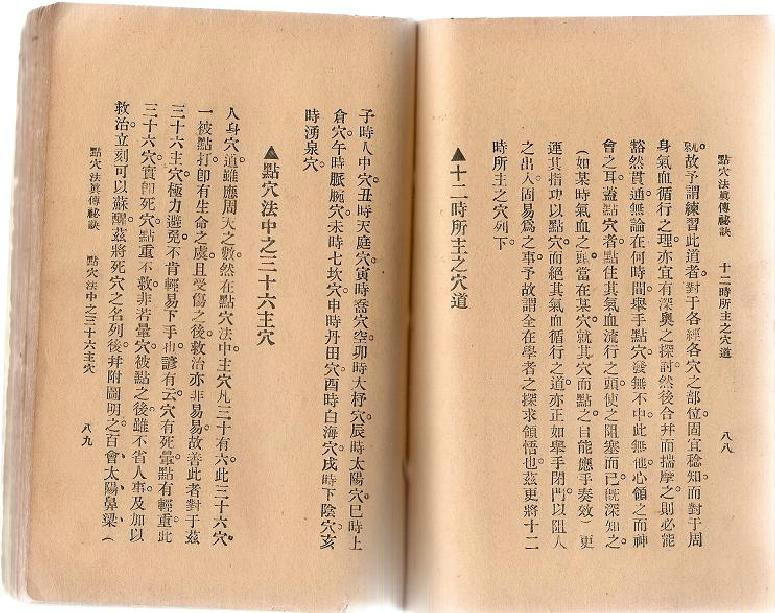 點穴法眞傳秘訣 十二時所主之穴道 八八
訣。故予謂練習此道者。對于各經各穴之部位。固宜稔知。而對于周
身氣血循行之理。亦宜有深奥之探討。然後合幷而揣摩之。則必能
豁然貫通。無論在何時間。舉手點穴。發無不中。此無他。心領之而神
會之耳。蓋點穴者。點住其氣血流行之頭。使之阻塞而已。旣深知之。
(如某時氣血之頭當在某穴。就其穴而點之。自能應手奏效)更
運其指功以點穴。而絕其氣血循行之道。亦正如舉手閉門。以阻人
之出入。固易爲之事。予故謂全在學者之探求領悟也。茲更將十二
時所主之穴列下。
▲十二時所主之穴道
子時人中穴。丑時天庭穴。寅時喬穴空。卯時大杼穴。辰時太陽穴。巳時上
倉穴。午時脈腕穴。未時七坎穴。申時丹田穴。酉時白海穴。戌時下陰穴。亥
時湧泉穴。
▲點穴法中之三十六主穴
人身穴道。雖應周天之數。然在點穴法中。主穴凡三十有六。此三十六穴。
一被點打。卽有生命之虞。且受傷之後。救治亦非易易。故善此者。對于茲
三十六主穴。極力避免。不肯輕易下手也。諺有云。穴有死暈。點有輕重。此
三十六穴。實卽死穴。點重不救。非若暈穴被點之後。雖不省人事。及加以
救治。立刻可以蘇醒。茲將死穴之名列後。幷附圖明之。百會。太陽。鼻梁。(
點穴法眞傳秘訣 點穴法中之三十六主穴 八九